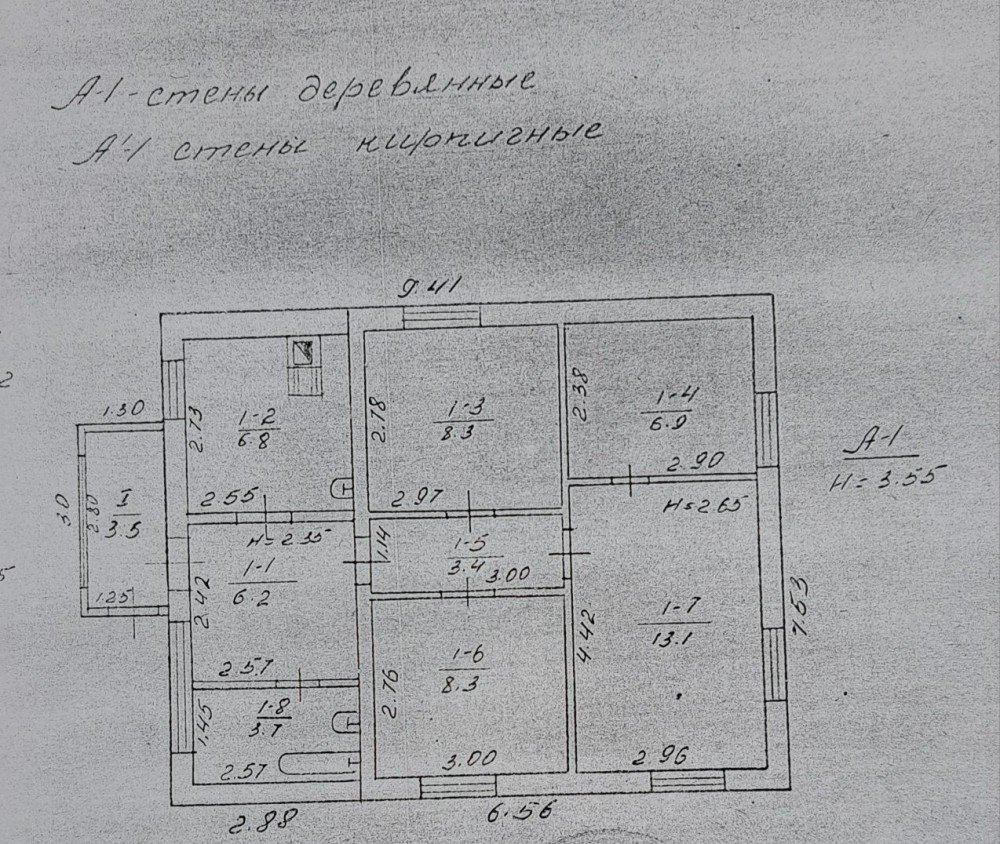 А-1 - стены деревянные
А'-1 стены кирпичные
9.41
1.30
1-2
6.8
2.73
2.55
1-3
8.3
2.78
2.97
1-4
6.9
2.38
2.90
А-1
H = 3.55
3.0
2.80
I
3.5
1.25
H = 2.35
1-1
6.2
2.42
2.57
1.14
1-5
3.4
3.00
H = 2.65
1-7
13.1
4.42
7.53
1-6
8.3
2.76
3.00
2.96
1-8
3.7
1.45
2.57
2.88
6.56